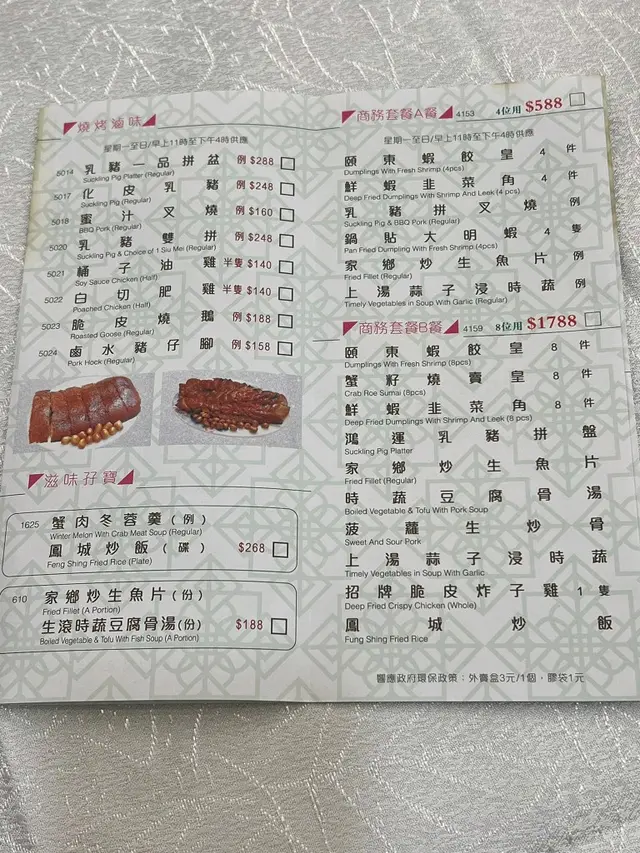 燒烤滷味
星期一至日/早上11時至下午4時供應
5014 乳豬一品拼盆 例 $288
Suckling Pig Platter (Regular)
5017 化皮乳豬 例 $248
Suckling Pig (Regular)
5018 蜜汁叉燒 例 $160
BBQ Pork (Regular)
5020 乳豬雙拼 例 $248
Suckling Pig & Choice of 1 Siu Mei (Regular)
5021 桶子油雞 半隻 $140
Soy Sauce Chicken (Half)
5022 白切肥雞 半隻 $140
Poached Chicken (Half)
5023 脆皮燒鵝 例 $188
Roasted Goose (Regular)
5024 鹵水豬仔腳 例 $158
Pork Hock (Regular)
滋味孖寶
1625 蟹肉冬蓉羹(例)
Winter Melon With Crab Meat Soup (Regular)
鳳城炒飯(碟) $268
Feng Shing Fried Rice (Plate)
610 家鄉炒生魚片(份)
Fried Fillet (A Portion)
生滾時蔬豆腐骨湯(份) $188
Boiled Vegetable & Tofu With Fish Soup (A Portion)
商務套餐A餐 4153 4位用 $588
星期一至日/早上11時至下午4時供應
頤東蝦餃皇 4 件
Dumplings With Fresh Shrimp (4pcs)
鮮蝦韭菜角 4 件
Deep Fried Dumplings With Shrimp And Leek (4 pcs)
乳豬拼叉燒 例
Suckling Pig & BBQ Pork (Regular)
鍋貼大明蝦 4 隻
Pan Fried Dumpling With Fresh Shrimp (4pcs)
家鄉炒生魚片 例
Fried Fillet (Regular)
上湯蒜子浸時蔬 例
Timely Vegetables in Soup With Garlic (Regular)
商務套餐B餐 4159 8位用 $1788
頤東蝦餃皇 8 件
Dumplings With Fresh Shrimp (8pcs)
蟹籽燒賣皇 8 件
Crab Roe Sumai (8pcs)
鮮蝦韭菜角 8 件
Deep Fried Dumplings With Shrimp And Leek (8 pcs)
鴻運乳豬拼盤
Suckling Pig Platter
家鄉炒生魚片
Fried Fillet (Regular)
時蔬豆腐骨湯
Boiled Vegetable & Tofu With Pork Soup
菠蘿生炒骨
Sweet And Sour Pork
上湯蒜子浸時蔬
Timely Vegetables in Soup With Garlic
招牌脆皮炸子雞 1 隻
Deep Fried Crispy Chicken (Whole)
鳳城炒飯
Fung Shing Fried Rice
響應政府環保政策:外賣盒3元/1個,膠袋1元